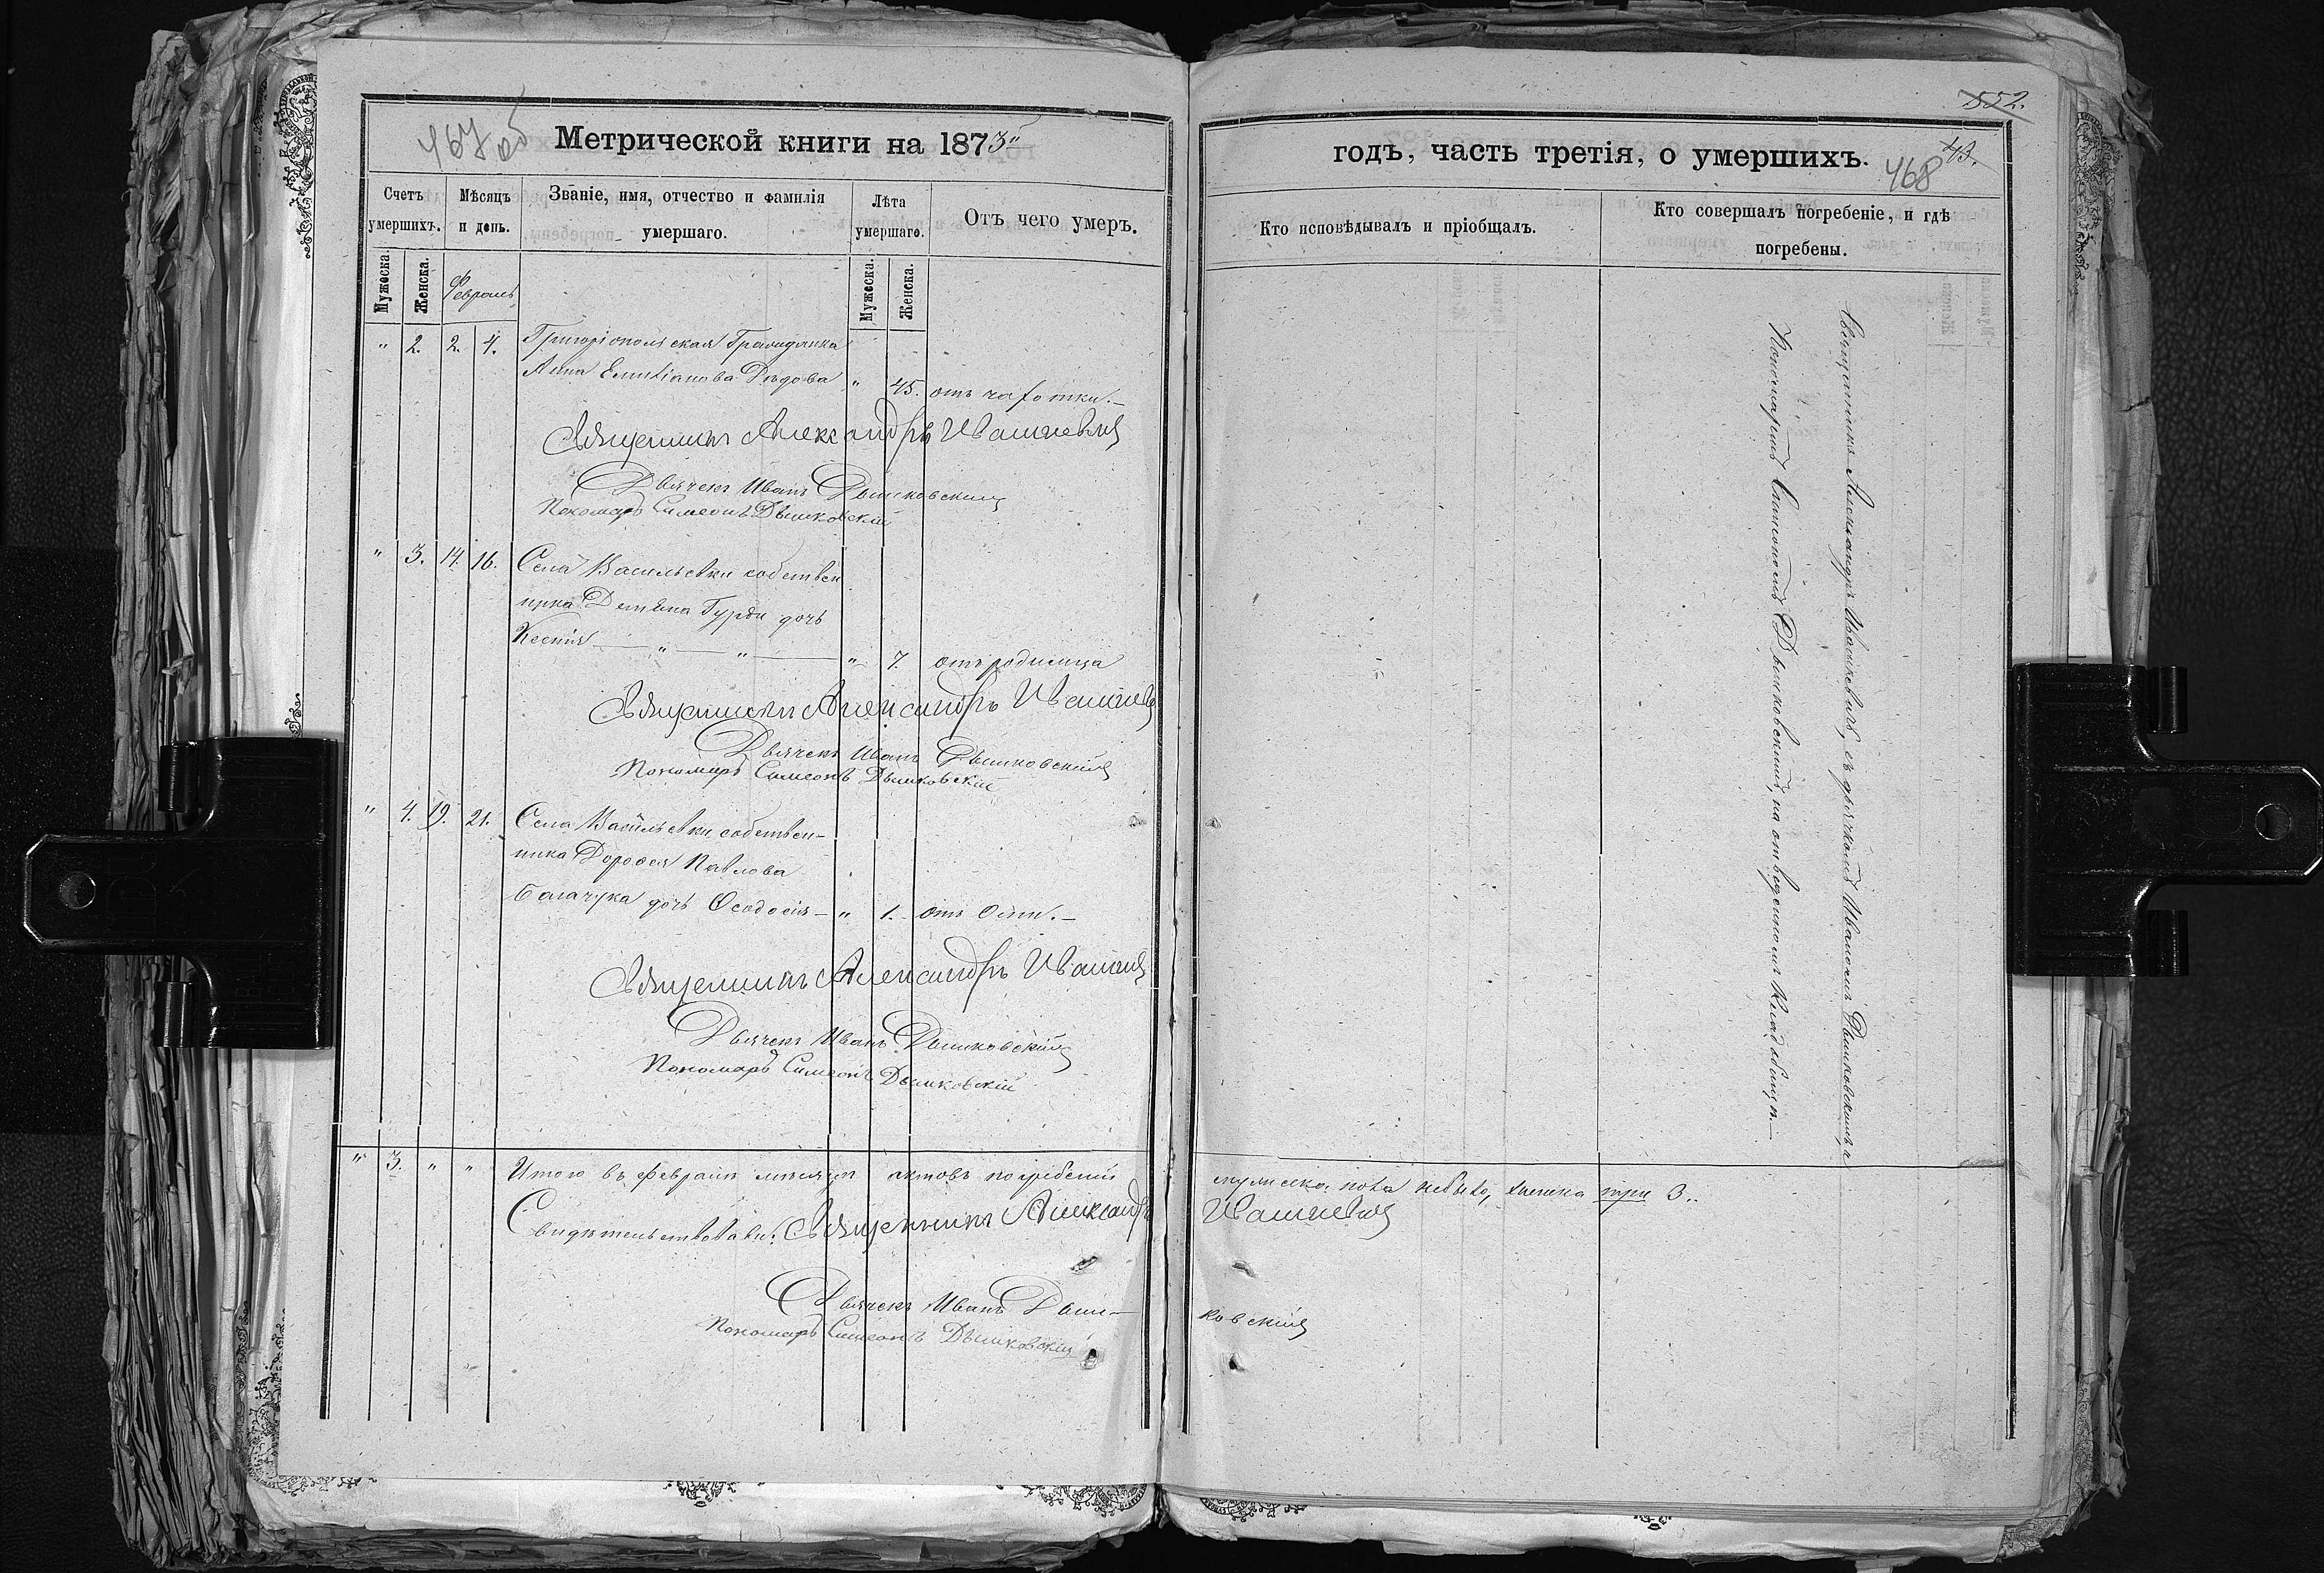 467 об
Метрической книги на 1873
Счетъ умершихъ.
Мѣсяцъ и день.
Званіе, имя, отчество и фамилія умершаго.
Лѣта умершаго.
Отъ чего умеръ.
Мужеска.
Женска.
Февраль
Мужеска.
Женска.
" 2. 2. 4. Григоріопольская Гражданка
Анна Емиліанова Дѣдова " 45. отъ чахотки.—
Священникъ Александръ Ивашкевичъ
Дьячекъ Иванъ Дымковскій
Пономарь Симеонъ Дымковскій
" 3. 14. 16. Села Васильевки собствен
ника Деміана Гурди дочь
Ксенія — " — " — " 7. отъ родимца
Священникъ Александръ
Дьячекъ Иванъ Дымковскій
Пономарь Симеонъ Дымковскій
" 4. 19. 21. Села Васильевки собствен-
ника Дорофея Павлова
дочь Ѳеодосія — " 1. отъ Оспи.—
Священникъ Александръ
Дьячекъ Иванъ Дымковскій
Пономарь Симеонъ Дымковскій
" 3. " " Итого въ февралѣ мѣсяцѣ актовъ погребеній
Свидѣтельствовали: Священникъ Александръ
Дьячекъ Иванъ Дым-
Пономарь Симеонъ Дымковскій
552.
43.
468
годъ, часть третія, о умершихъ.
Кто исповѣдывалъ и пріобщалъ.
Кто совершалъ погребеніе, и гдѣ погребены.
Священникъ Александръ Ивашкевичъ, съ дьячкомъ Иваномъ Дымковскимъ и
Пономаремъ Симеономъ Дымковскимъ, на отведенномъ Кладбищѣ.—
мужеско: пола небыло, женска три 3..
Ивашкевичъ
ковскій